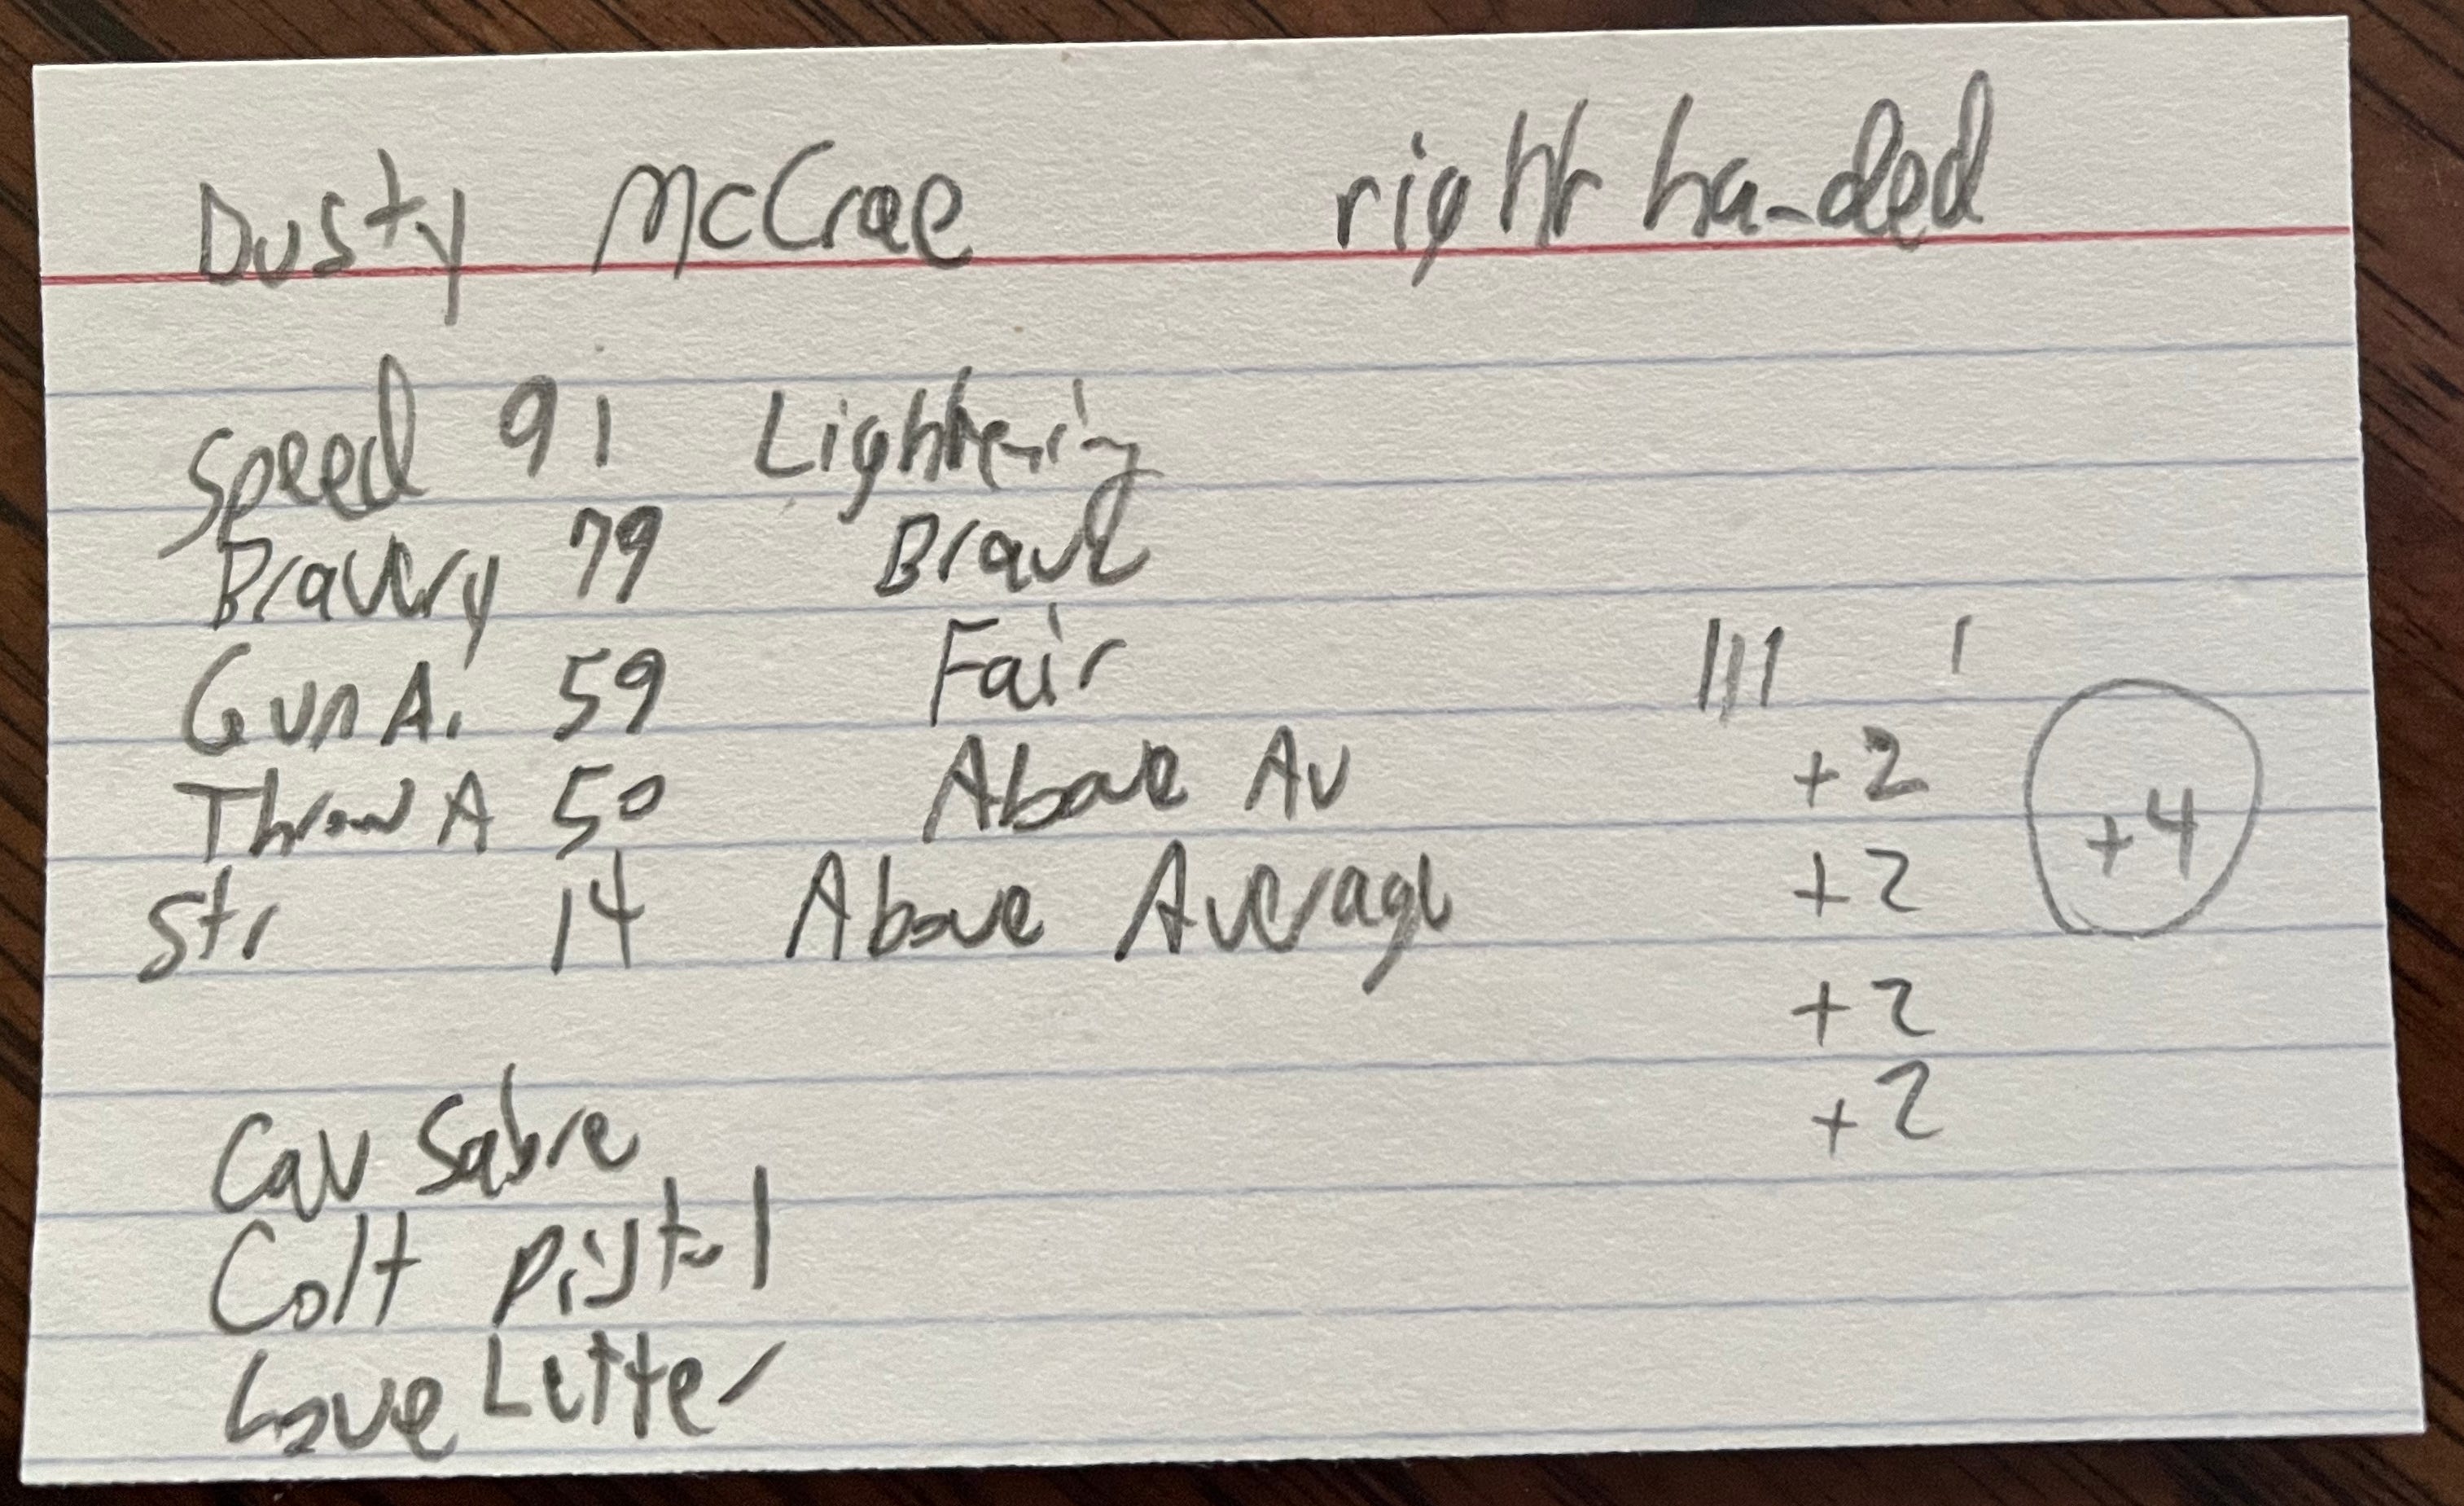 Dusty McCrae right handed
Speed 91 Lightening
Bravery 79 Brave
Gun A. 59 Fair ||| |
Throw A 50 Above Av +2
+4
Str 14 Above Average +2
+2
+2
Cav Sabre
Colt Pistol
Love Letter